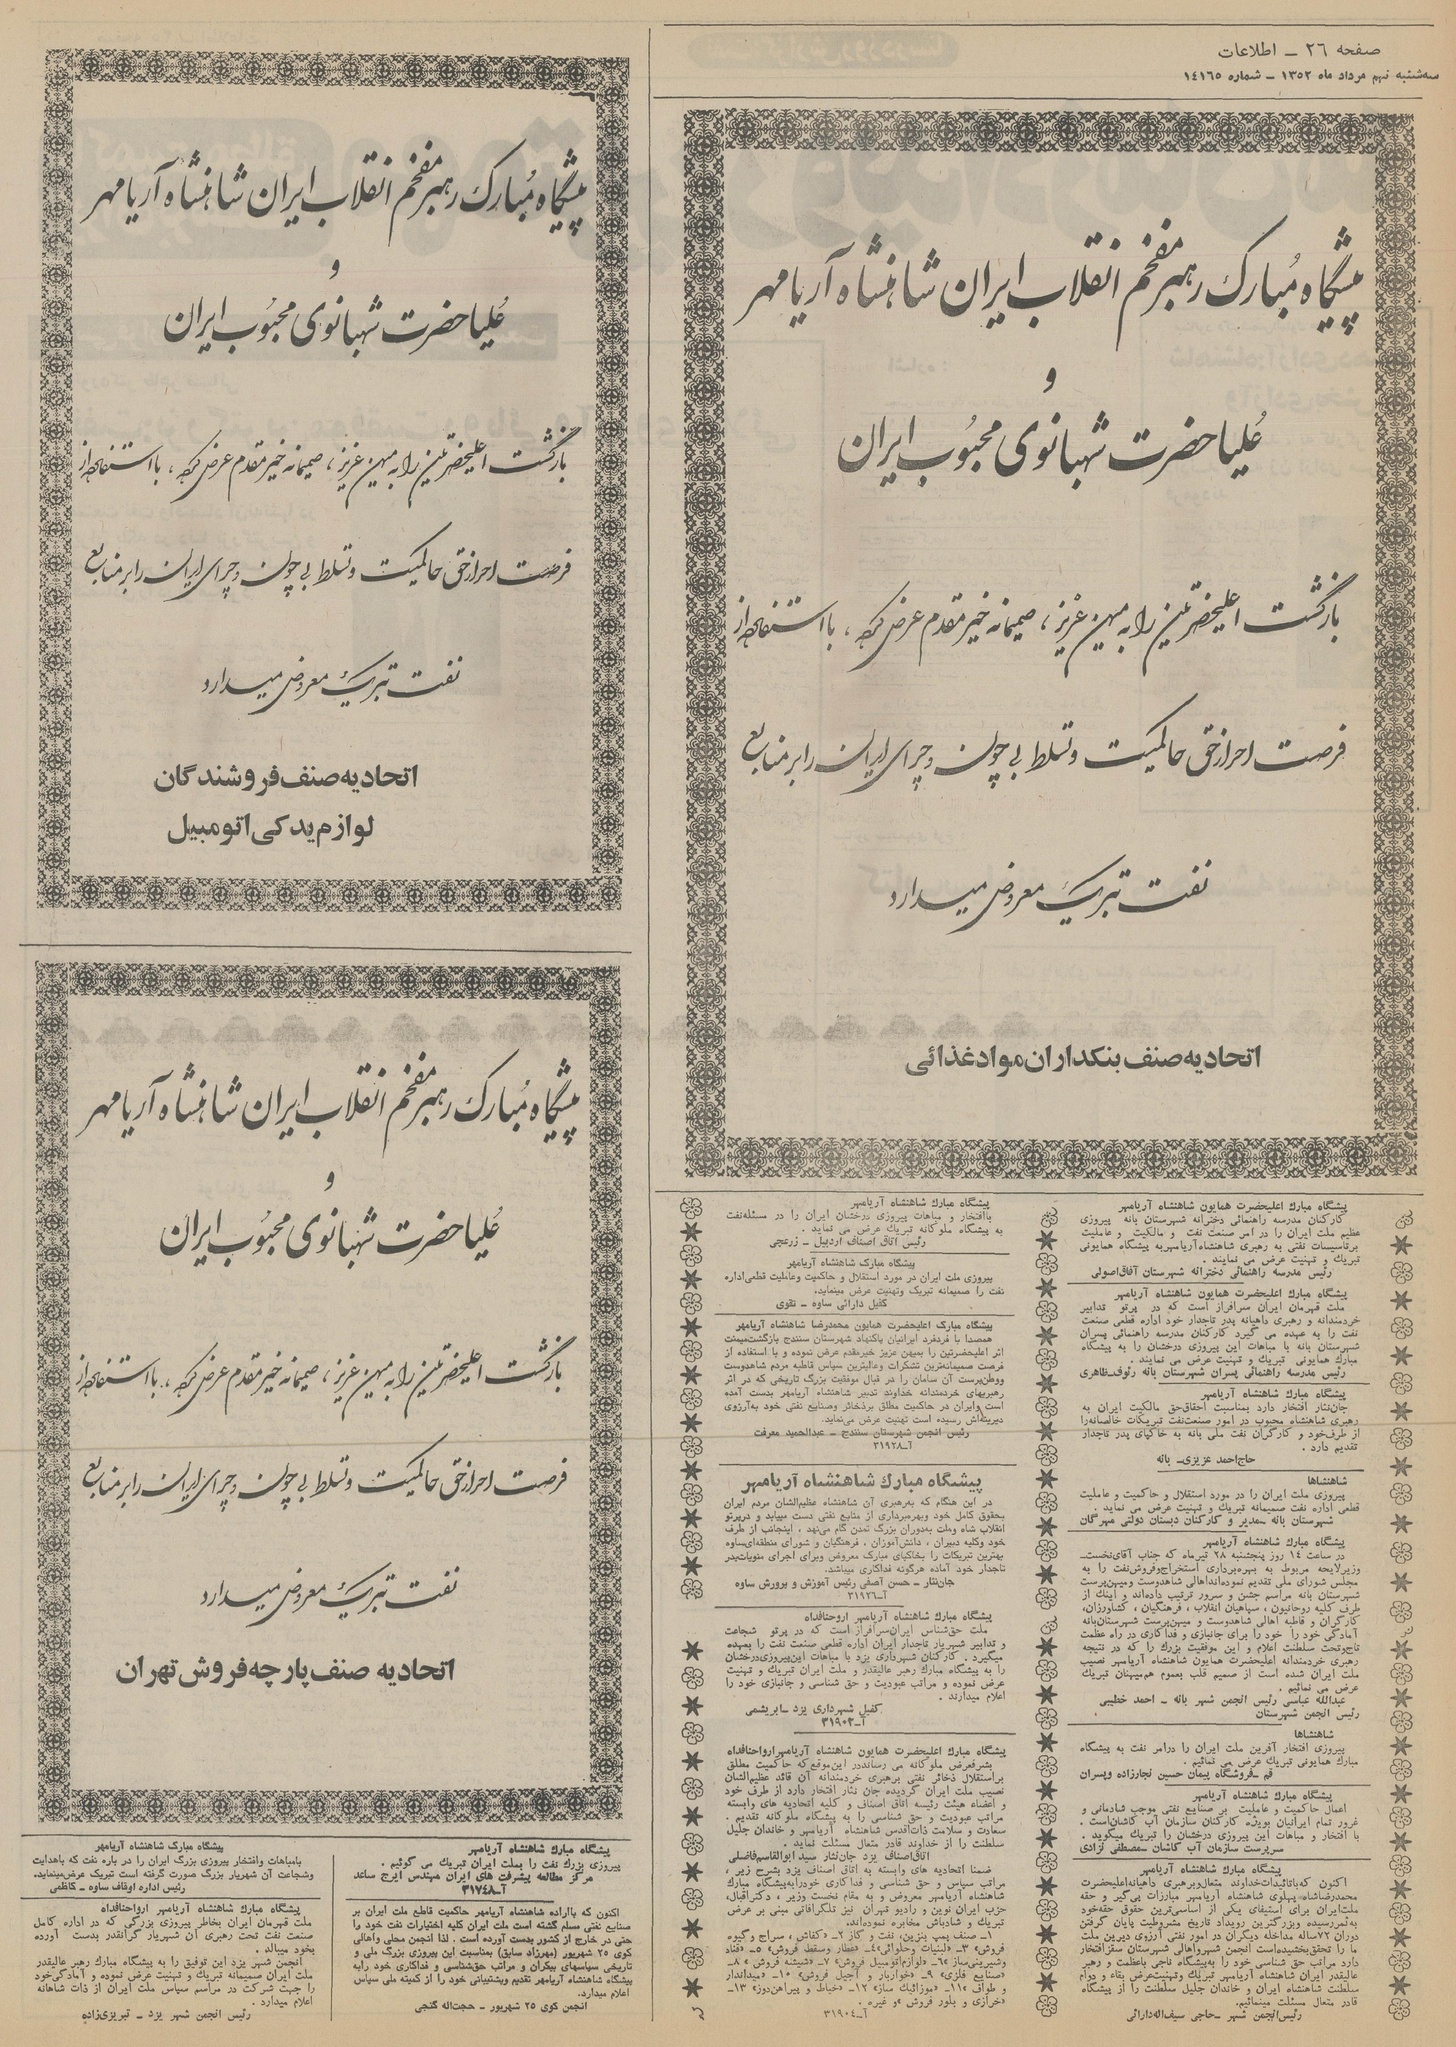 صفحه ۲۶ ــ اطلاعات
سه‌شنبه نهم مرداد ماه ۱۳۵۲ ــ شماره ۱۴۱۶۵
پیشگاه مُبارک رهبر مفخم انقلاب ایران شاهنشاه آریامهر
و
عُلیاحضرت شهبانوی محبُوب ایران
بازگشت اعلیحضرتین را به میهن عزیز، صمیمانه خیر مقدم عرض کرده، با استفاده از
فرصت احراز حق حاکمیت و تسلط بی چون و چرای ایران را بر منابع
نفت تبریک معروض میدارد
اتحادیه صنف بنکداران مواد غذائی
پیشگاه مُبارک رهبر مفخم انقلاب ایران شاهنشاه آریامهر
و
عُلیاحضرت شهبانوی محبُوب ایران
بازگشت اعلیحضرتین را به میهن عزیز، صمیمانه خیر مقدم عرض کرده، با استفاده از
فرصت احراز حق حاکمیت و تسلط بی چون و چرای ایران را بر منابع
نفت تبریک معروض میدارد
اتحادیه صنف فروشندگان
لوازم یدکی اتومبیل
پیشگاه مُبارک رهبر مفخم انقلاب ایران شاهنشاه آریامهر
و
عُلیاحضرت شهبانوی محبُوب ایران
بازگشت اعلیحضرتین را به میهن عزیز، صمیمانه خیر مقدم عرض کرده، با استفاده از
فرصت احراز حق حاکمیت و تسلط بی چون و چرای ایران را بر منابع
نفت تبریک معروض میدارد
اتحادیه صنف پارچه فروش تهران
پیشگاه مبارك اعلیحضرت همایون شاهنشاه آریامهر
کارکنان مدرسه راهنمائی دخترانه شهرستان بانه پیروزی
عظیم ملت ایران را در امر صنعت نفت و مالکیت و عاملیت
برتاسیسات نفتی به رهبری شاهنشاه آریامهربه پیشگاه همایونی
تبریك و تهنیت عرض می نمایند .
رئیس مدرسه راهنمائی دخترانه شهرستان آفاق‌اصولی
پیشگاه مبارك اعلیحضرت همایون شاهنشاه آریامهر
ملت قهرمان ایران سرافراز است که در پرتو تدابیر
خردمندانه و رهبری داهیانه پدر تاجدار خود اداره قطعی صنعت
نفت را به عهده می گیرد کارکنان مدرسه راهنمائی پسران
شهرستان بانه با مباهات این پیروزی درخشان را به پیشگاه
مبارك همایونی تبریك و تهنیت عرض می نمایند .
رئیس مدرسه راهنمائی پسران شهرستان بانه رئوف‌ظاهری
پیشگاه مبارك شاهنشاه آریامهر
جان‌نثار افتخار دارد بمناسبت احقاق‌حق مالکیت ایران به
رهبری شاهنشاه محبوب در امور صنعت‌نفت تبریکات خالصانه‌را
از طرف‌خود و کارگران نفت ملی بانه به خاکپای پدر تاجدار
تقدیم دارد .
حاج‌احمد عزیزی‌ــ بانه
شاهنشاها
پیروزی ملت ایران را در مورد استقلال و حاکمیت و عاملیت
قطعی اداره نفت صمیمانه تبریك و تهنیت عرض می نماید .
شهرستان بانه ــمدیر و کارکنان دبستان دولتی مهرگان
پیشگاه مبارك شاهنشاه آریامهر
در ساعت ۱۴ روز پنجشنبه ۲۸ تیرماه که جناب آقای‌نخست‌ــ
وزیرلایحه مربوط به بهره‌برداری استخراج‌وفروش‌نفت را به
مجلس شورای ملی تقدیم نموده‌انداهالی شاهدوست ومیهن‌پرست
شهرستان بانه مراسم جشن و سرور ترتیب داده‌اند و اینك از
طرف کلیه روحانیون ، سپاهیان انقلاب ، فرهنگیان ، کشاورزان،
کارگران و قاطبه اهالی شاهدوست و میهن‌پرست شهرستان‌بانه
آمادگی خود را خود را برای جانبازی و فداکاری در راه عظمت
تاج‌وتخت سلطنت اعلام و این موفقیت بزرك را که در نتیجه
رهبری خردمندانه اعلیحضرت همایون شاهنشاه آریامهر نصیب
ملت ایران شده است از صمیم قلب بعموم هم‌میهنان تبریك
عرض می نمائیم .
عبدالله عباسی رئیس انجمن شهر بانه ــ احمد خطیبی
رئیس انجمن شهرستان
شاهنشاها
پیروزی افتخار آفرین ملت ایران را درامر نفت به پیشگاه
مبارك همایونی تبریك عرض می نمائیم .
قم ــفروشگاه پیمان حسین نجارزاده وپسران
پیشگاه مبارك شاهنشاه آریامهر
اعمال حاکمیت و عاملیت بر صنایع نفتی موجب شادمانی و
غرور تمام ایرانیان بویژه کارکنان سازمان آب کاشان‌است .
با افتخار و مباهات این پیروزی درخشان را تبریك میگوید .
سرپرست سازمان آب کاشان ــمصطفی نژادی
پیشگاه مبارك شاهنشاه آریامهر
اکنون که‌باتائیدات‌خداوند متعال‌وبرهبری داهیانه‌اعلیحضرت
محمدرضاشاه‌پهلوی شاهنشاه آریامهر مبارزات پی‌گیر و حقه
ملت‌ایران برای استیفای یکی از اساسی‌ترین حقوق حقه‌خود
به‌ثمررسیده وبزرگترین رویداد تاریخ مشروطیت پایان گرفتن
دوران ۷۲ساله مداخله دیگران در امور نفتی آرزوی دیرین ملت
ما را تحقق‌بخشیده‌است انجمن شهرواهالی شهرستان سقزافتخار
دارد مراتب حق شناسی خود را به‌پیشگاه ناجی باعظمت و رهبر
عالیقدر ایران شاهنشاه آریامهر تبریك وتهنیت‌عرض بقاء و دوام
سلطنت شاهنشاه ایران و خاندان جلیل سلطنت را از پیشگاه
قادر متعال مسئلت مینمائیم.
رئیس‌انجمن شهر ــ حاجی سیف‌اله‌دارائی
پیشگاه مبارك شاهنشاه آریامهر
باافتخار و مباهات پیروزی درخشان ایران را در مسئله‌نفت
به پیشگاه ملوکانه تبریك عرض می نماید .
رئیس اتاق اصناف اردبیل ــ زرعچی
پیشگاه مبارک شاهنشاه آریامهر
پیروزی ملت ایران در مورد استقلال و حاکمیت وعاملیت قطعی‌اداره
نفت را صمیمانه تبریک وتهنیت عرض مینماید.
کفیل دارائی ساوه ــ تقوی
پیشگاه مبارک اعلیحضرت همایون محمدرضا شاهنشاه آریامهر
همصدا با فردفرد ایرانیان پاکنهاد شهرستان سنندج بازگشت‌میمنت
اثر اعلیحضرتین را بمیهن عزیز خیرمقدم عرض نموده و با استفاده از
فرصت صمیمانه‌ترین تشکرات وعالیترین سپاس قاطبه مردم شاهدوست
ووطن‌پرست آن سامان را در قبال موفقیت بزرگ تاریخی که در اثر
رهبریهای خردمندانه خداوند تدبیر شاهنشاه آریامهر بدست آمده
است وایران در حاکمیت مطلق برذخائر وصنایع نفتی خود به‌آرزوی
دیرینه‌اش رسیده است تهنیت عرض می‌نماید.
رئیس انجمن شهرستان سنندج ــ عبدالحمید معرفت
آ‌ــ۳۱۹۲۸
پیشگاه مبارك شاهنشاه آریامهر
در این هنگام که به‌رهبری آن شاهنشاه عظیم‌الشان مردم ایران
بحقوق کامل خود وبهره‌برداری از منابع نفتی دست مییابد و درپرتو
انقلاب شاه وملت به‌دوران بزرگ تمدن گام می‌نهد ، اینجانب از طرف
خود وکلیه دبیران ، دانش‌آموزان ، فرهنگیان و شورای منطقه‌ای‌ساوه
بهترین تبریکات را بخاکپای مبارک معروض وبرای اجرای منویات‌پدر
تاجدار خود آماده هرگونه فداکاری میباشد.
جان‌نثار ــ حسن آصفی رئیس آموزش و پرورش ساوه
آ‌ــ۳۱۹۲۶
پیشگاه مبارك شاهنشاه آریامهر ارواحنافداه
ملت حق‌شناس ایران‌سرافراز است که در پرتو شجاعت
و تدابیر شهریار تاجدار ایران اداره قطعی صنعت نفت را بعهده
میگیرد . کارکنان شهرداری یزد با مباهات این‌پیروزی‌درخشان
را به پیشگاه مبارك رهبر عالیقدر و ملت ایران تبریك و تهنیت
عرض نموده و مراتب عبودیت و حق شناسی و جانبازی خود را
اعلام میدارند .
کفیل شهرداری یزد ــابریشمی
آ‌ــ۳۱۹۰۲
پیشگاه مبارك اعلیحضرت همایون شاهنشاه آریامهر ارواحنافداه
بشرفعرض ملوکانه می رسانددر این‌موقع‌که حاکمیت مطلق
براستقلال ذخائر نفتی برهبری خردمندانه آن قائد عظیم‌الشان
نصیب ملت ایران گردیده جان نثار افتخار دارد از طرف خود
و اعضاء هیئت رئیسه اتاق اصناف و کلیه اتحادیه های وابسته
مراتب عبودیت و حق شناسی را به پیشگاه ملوکانه تقدیم .
سعادت و سلامت ذات‌اقدس شاهنشاه آریامهر و خاندان جلیل
سلطنت را از خداوند قادر متعال مسئلت نماید .
اتاق‌اصناف یزد جان‌نثار سید ابوالقاسم‌فاضلی
ضمنا اتحادیه های وابسته به اتاق اصناف یزد بشرح زیر ،
مراتب سپاس و حق شناسی و فداکاری خودرابه‌پیشگاه مبارك
شاهنشاه آریامهر معروض و به مقام نخست وزیر ، دکتراقبال،
حزب ایران نوین و رادیو تهران نیز تلگرافاتی مبنی بر عرض
تبریك و شادباش مخابره نموده‌اند.
۱ــ صنف پمپ بنزین، نفت و گاز ۲ــ «کفاش ، سراج وگیوه
فروش» ۳ــ «لبنیات وحلوائی»۴ــ «عطار وسقط فروش» ۵ــ «قناد
وشیرینی‌ساز »۶ــ «لوازم‌اتومبیل فروش» ۷ــ «شیشه فروش » ۸ــ
«صنایع فلزی» ۹ــ «خواربار و آجیل فروش» ۱۰ــ «میداندار
و طواف »۱۱ــ «موزائیك ساز» ۱۲ــ «خیاط و پیراهن‌دوز» ۱۳ــ
«خرازی و بلور فروش »و غیره .
آ‌ــ۳۱۹۰۴
پیشگاه مبارك شاهنشاه آریامهر
پیروزی بزرك نفت را بملت ایران تبریك می گوئیم .
مرکز مطالعه پیشرفت های ایران مهندس ایرج ساعد
آ‌ــ۳۱۷۴۸
اکنون که بااراده شاهنشاه آریامهر حاکمیت قاطع ملت ایران بر
صنایع نفتی مسلم گشته است ملت ایران کلیه اختیارات نفت خود را
حتی در خارج از کشور بدست آورده است . لذا انجمن محلی واهالی
کوی ۲۵ شهریور (مهرزاد سابق) بمناسبت این پیروزی بزرگ ملی و
تاریخی سپاسهای بیکران و مراتب حق‌شناسی و فداکاری خود رابه
پیشگاه شاهنشاه آریامهر تقدیم وپشتیبانی خود را از کمیته ملی سپاس
اعلام میدارد.
انجمن کوی ۲۵ شهریور ــ حجت‌اله گنجی
پیشگاه مبارک شاهنشاه آریامهر
بامباهات وافتخار پیروزی بزرگ ایران را در باره نفت که باهدایت
وشجاعت آن شهریار بزرگ صورت گرفته است تبریک عرض‌مینماید.
رئیس اداره اوقاف ساوه ــ کاظمی
پیشگاه مبارك شاهنشاه آریامهر ارواحنافداه
ملت قهرمان ایران بخاطر پیروزی بزرگی که در اداره کامل
صنعت نفت تحت رهبری آن شهریار گرانقدر بدست آورده
بخود میبالد .
انجمن شهر یزد این توفیق را به پیشگاه مبارك رهبر عالیقدر
ملت ایران صمیمانه تبریك و تهنیت عرض نموده و آمادگی‌خود
را جهت شرکت در مراسم سپاس ملت ایران از ذات شاهانه
اعلام میدارد .
رئیس انجمن شهر یزد ــ تبریزی‌زاده